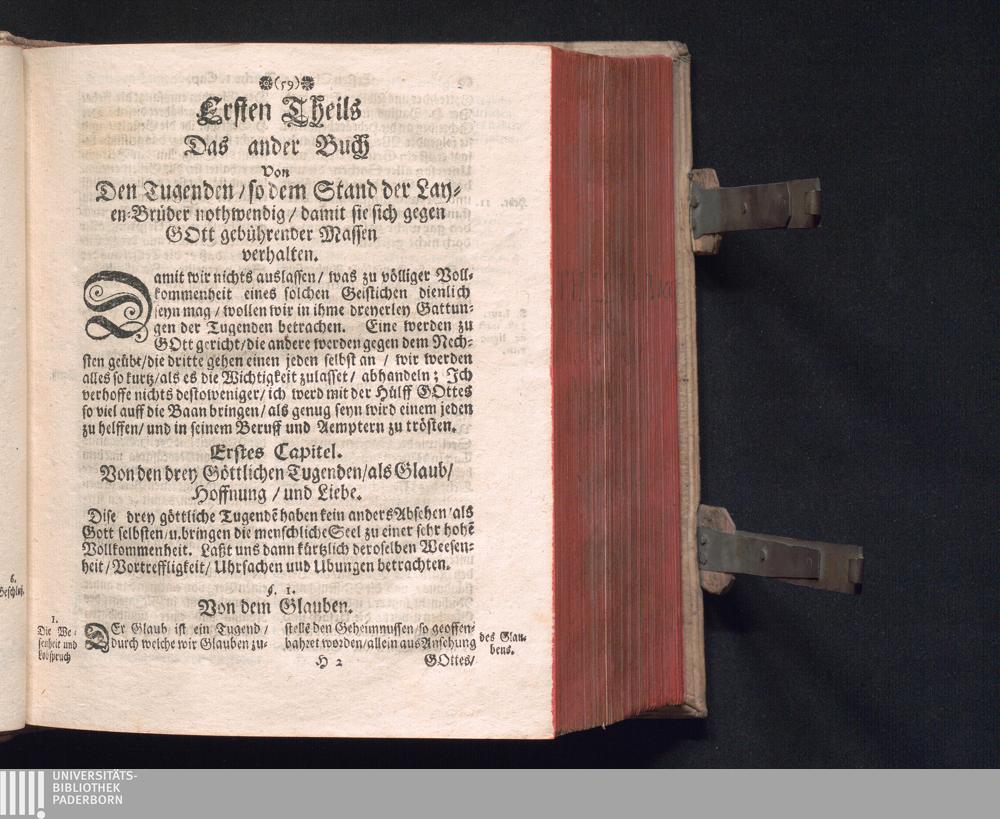 (59)
Ersten Theils
Das ander Buch
Von
Den Tugenden / so dem Stand der Lay-
en-Brüder nothwendig / damit sie sich gegen
GOtt gebührender Massen
verhalten.
Damit wir nichts auslassen / was zu völliger Voll-
kommenheit eines solchen Geistichen dienlich
seyn mag / wollen wir in ihme dreyerley Gattun-
gen der Tugenden betrachen. Eine werden zu
GOtt gericht / die andere werden gegen dem Nech-
sten geübt / die dritte gehen einen jeden selbst an / wir werden
alles so kurtz / als es die Wichtigkeit zulasset / abhandeln ; Ich
verhoffe nichts destoweniger / ich werd mit der Hülff GOttes
so viel auff die Baan bringen / als genug seyn wird einem jeden
zu helffen / und in seinem Beruff und Aemptern zu trösten.
Erstes Capitel.
Von den drey Göttlichen Tugenden / als Glaub /
Hoffnung / und Liebe.
Dise drey göttliche Tugendẽ haben kein anders Absehen / als
Gott selbsten / u. bringen die menschliche Seel zu einer sehr hohẽ
Vollkommenheit. Laßt uns dann kürtzlich deroselben Weesen-
heit / Vortreffligkeit / Uhrsachen und Ubungen betrachten.
§. 1.
Von dem Glauben.
6.
Beschluß.
1.
Die We-
senheit und
Lobspruch
des Glau-
bens.
DEr Glaub ist ein Tugend /
durch welche wir Glauben zu-
stellẽ den Geheimnussen / so geoffen-
bahret worden / allein aus Ansehung
H 2
GOttes /
Hebr. 11.
UNIVERSITÄTS-
BIBLIOTHEK
PADERBORN